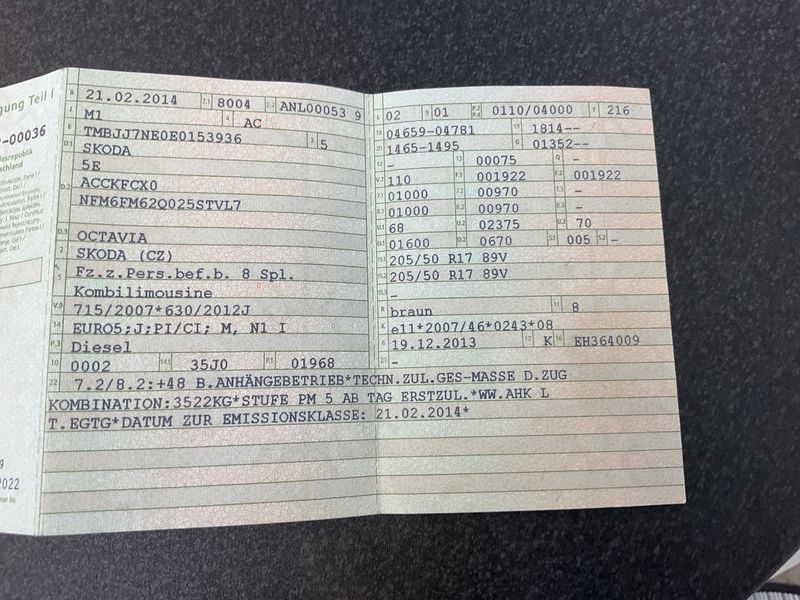 gung Teil I
-00036
desrepublik
schland
9
2022
B 21.02.2014 2.1 8004 2.2 ANL00053 9
J M1 4 AC
E TMBJJ7NE0E0153936 3 5
D.1 SKODA
5E
D.2 ACCKFCX0
NFM6FM62Q025STVL7
D.3 OCTAVIA
2 SKODA (CZ)
5 Fz.z.Pers.bef.b. 8 Spl.
Kombilimousine
V.9 715/2007*630/2012J
14 EURO5;J;PI/CI; M, N1 I
P.3 Diesel
10 0002 14.1 35J0 P.1 01968
22 7.2/8.2:+48 B.ANHÄNGEBETRIEB*TECHN.ZUL.GES-MASSE D.ZUG
KOMBINATION:3522KG*STUFE PM 5 AB TAG ERSTZUL.*WW.AHK L
T.EGTG*DATUM ZUR EMISSIONSKLASSE: 21.02.2014*
L 02 9 01 P.2 P.4 0110/04000 T 216
18 04659-04781 19 1814--
20 1465-1495 G 01352--
12 - 13 00075 Q -
V.7 110 F.1 001922 F.2 001922
7.1 01000 7.2 00970 7.3 -
8.1 01000 8.2 00970 8.3 -
U.1 68 U.2 02375 U.3 70
O.1 01600 O.2 0670 S.1 005 S.2 -
15.1 205/50 R17 89V
15.2 205/50 R17 89V
15.3 -
R braun 11 8
K e11*2007/46*0243*08
6 19.12.2013 17 K 16 EH364009
21 -